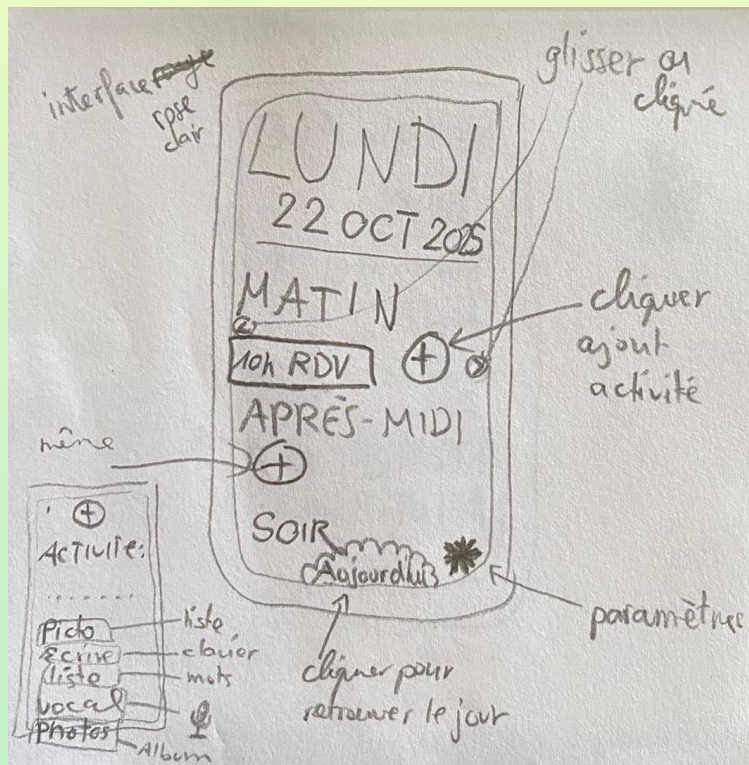 interface rose clair
glisser ou cliqué
LUNDI
22 OCT 2025
MATIN
10h RDV
cliquer
ajout
activité
APRÈS-MIDI
même
SOIR
Aujourdhui
paramètres
cliquer pour
retrouver le jour
ACTIVITE:
Picto
liste
Ecrire
clavier
liste
mots
vocal
Photos
Album